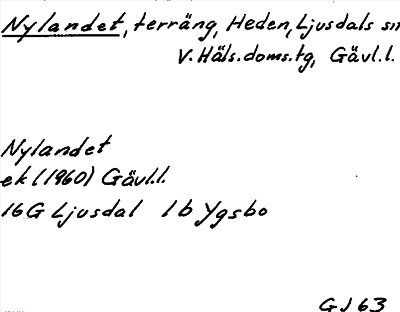 Nylandet, terräng, Heden, Ljusdals sn
V. Häls. doms. tg, Gävl. l.
Nylandet
ek (1960) Gävl. l.
16G Ljusdal 1b Ygsbo
GJ 63